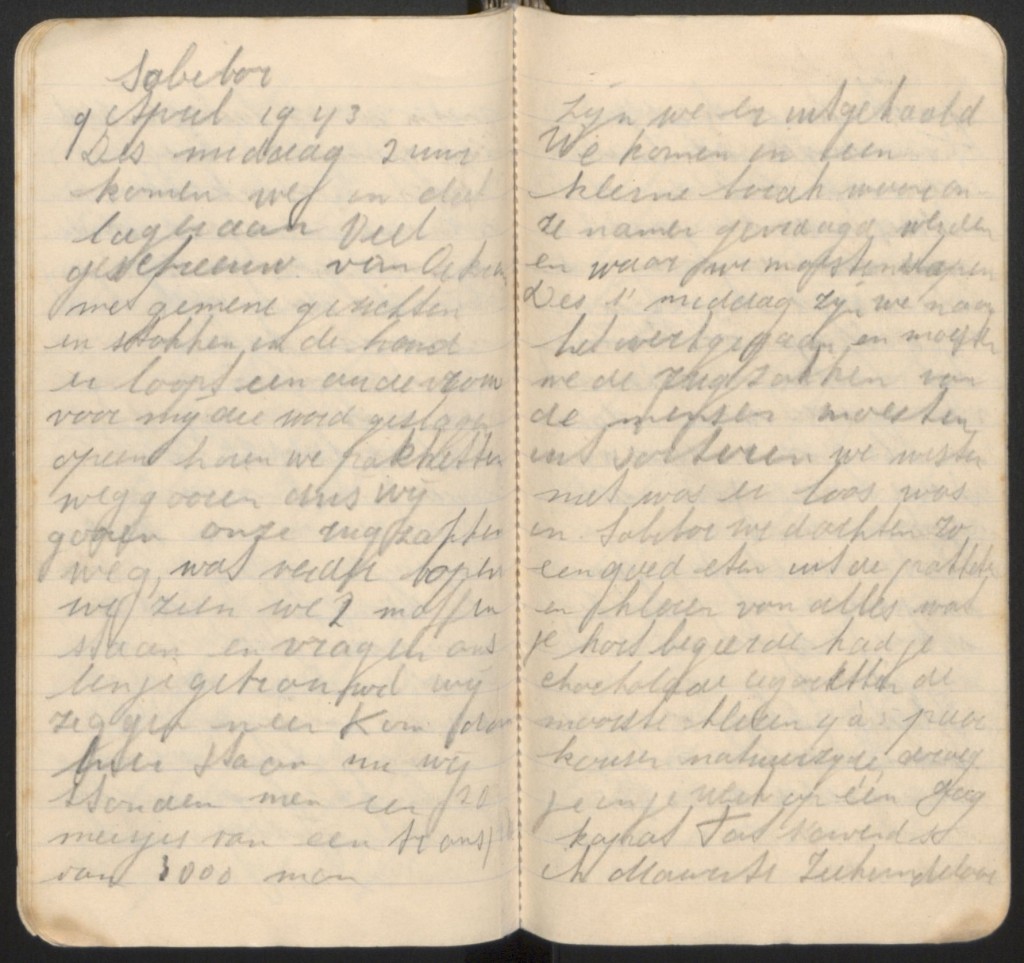 Sobibor
9 April 1943
Des middag 2 uur
komen wij in dat
lager aan Veel
geschreeuw van
met gemene gezichten
en stokken in de hand
er loopt een oude vrouw
voor mij die word geslagen
opeen horen we pakketten
weg gooien dus wij
gooien onze rugzakken
weg, was verder lopen
wij zien we 2 moffen
staan en vragen ons
ben je getrouwd wij
zeggen neen Kom dan
hier staan nu wij
stonden men een 20
meisjes van een transp
van 3000 man
zijn we er uitgehaald
We komen in een
kleine barak waar on-
ze namen gevraagd werden
en waar we moesten slapen
Des s' middag zijn we naar
het werk gegaan en moesten
we de rugzakken van
de mensen moesten
uit sorteren we wisten
niet was er loos was
in Sobibor we dachten zo
een goed eten uit de pakketten
en kleren van alles was
je hart begeerde had je
chocholade cigaretten de
mooiste kleren ja paar
kousen natuurzijde droeg
je in je werk op één dag
kapot